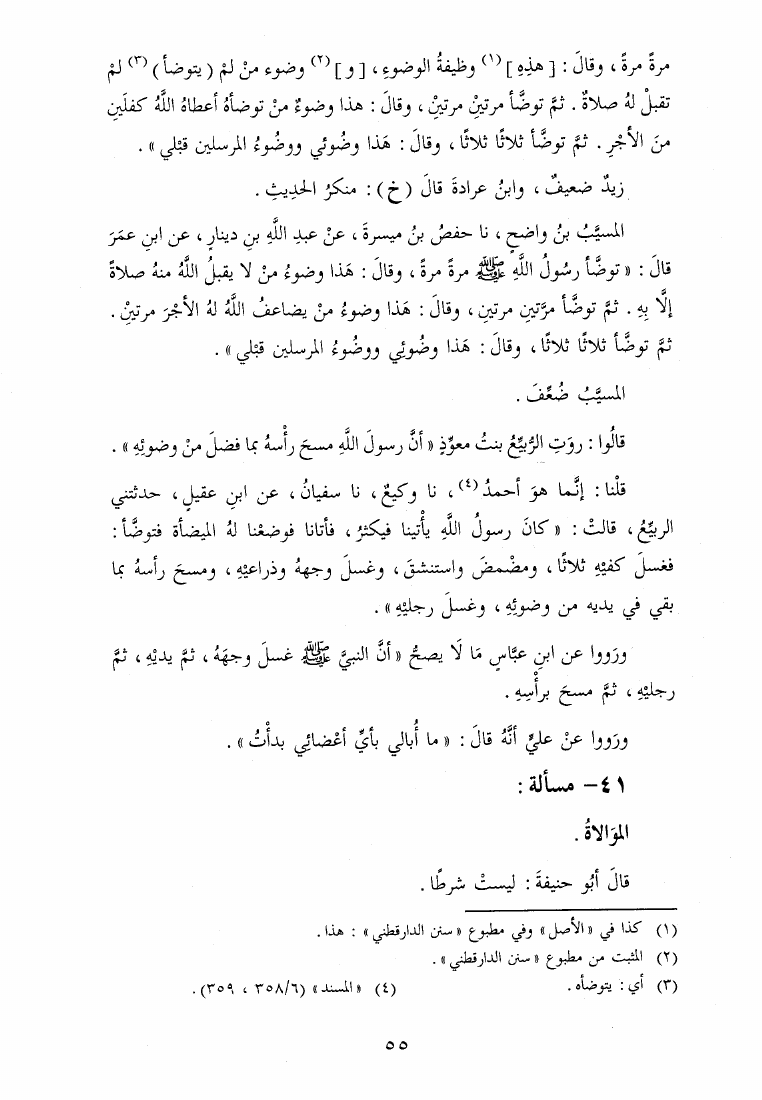 مرةً مرةً ، وقالَ : [ هذِهِ ] (١) وظيفةُ الوضوءِ ، [ و ] (٢) وضوء منْ لمْ ( يتوضأ ) (٣) لمْ
تقبلْ لهُ صلاةٌ . ثمَّ توضَّأ مرتيْنِ مرتيْنِ ، وقالَ : هذا وضوءٌ منْ توضأهُ أعطاهُ اللَّهُ كفلَينِ
منَ الأجْرِ . ثمَّ توضَّأ ثلاثًا ثلاثًا ، وقالَ : هَذا وضُوئي ووضُوءُ المرسلين قبْلي » .
زيدٌ ضعيفٌ ، وابنُ عرادةَ قالَ ( خ ) : منكرُ الحَديثِ .
المسيَّبُ بنُ واضحٍ ، نا حفصُ بنُ ميسرةَ ، عنْ عبدِ اللَّهِ بنِ دينارٍ ، عن ابنِ عمَرَ
قالَ : « توضَّأ رسُولُ اللَّهِ ﷺ مرةً مرةً ، وقالَ : هَذا وضوءُ منْ لا يقبلُ اللَّهُ منهُ صلاةً
إلَّا بِهِ . ثمَّ توضَّأ مرَّتينِ مرتينِ ، وقالَ : هَذا وضوءُ منْ يضاعفُ اللَّهُ لهُ الأجْرَ مرتينْ .
ثمَّ توضَّأ ثلاثًا ثلاثًا ، وقالَ : هَذا وضُوئِي ووضُوءُ المرسلين قبْلي » .
المسيَّبُ ضُعِّفَ .
قالُوا : روَتِ الرُّبيِّعُ بنتُ معوِّذٍ « أنَّ رسولَ اللَّهِ مسحَ رأْسهُ بما فضلَ منْ وضوئِهِ » .
قلْنا : إنَّما هوَ أحمدُ (٤) ، نا وكيعٌ ، نا سفيانُ ، عن ابنِ عقيلٍ ، حدثتني
الربيِّعُ ، قالتْ : « كانَ رسولُ اللَّهِ يأْتينا فيكثرُ ، فأتانا فوضعْنا لهُ الميضأةَ فتوضَّأ :
فغسلَ كفيْهِ ثلاثًا ، ومضْمضَ واستنشقَ ، وغسلَ وجههُ وذراعيْهِ ، ومسحَ رأسهُ بما
بقي في يديه من وضوئِهِ ، وغسلَ رجليْهِ » .
ورَووا عن ابنِ عبَّاسٍ مَا لَا يصحُّ « أنَّ النبيَّ ﷺ غسلَ وجهَهُ ، ثمَّ يديْهِ ، ثمَّ
رجليْهِ ، ثمَّ مسحَ برأْسِهِ .
ورَووا عنْ عليٍّ أنَّهُ قالَ : « ما أُبالي بأيِّ أعْضائِي بدأْتُ » .
٤١- مسألة :
الموَالاةُ .
قالَ أبُو حنيفةَ : ليستْ شرطًا .
(١) كذا في « الأصل » وفي مطبوع « سنن الدارقطني » : هذا .
(٢) المثبت من مطبوع « سنن الدارقطني » .
(٣) أي : يتوضأه . (٤) « المسند » (٦/ ٣٥٨ ، ٣٥٩) .
٥٥